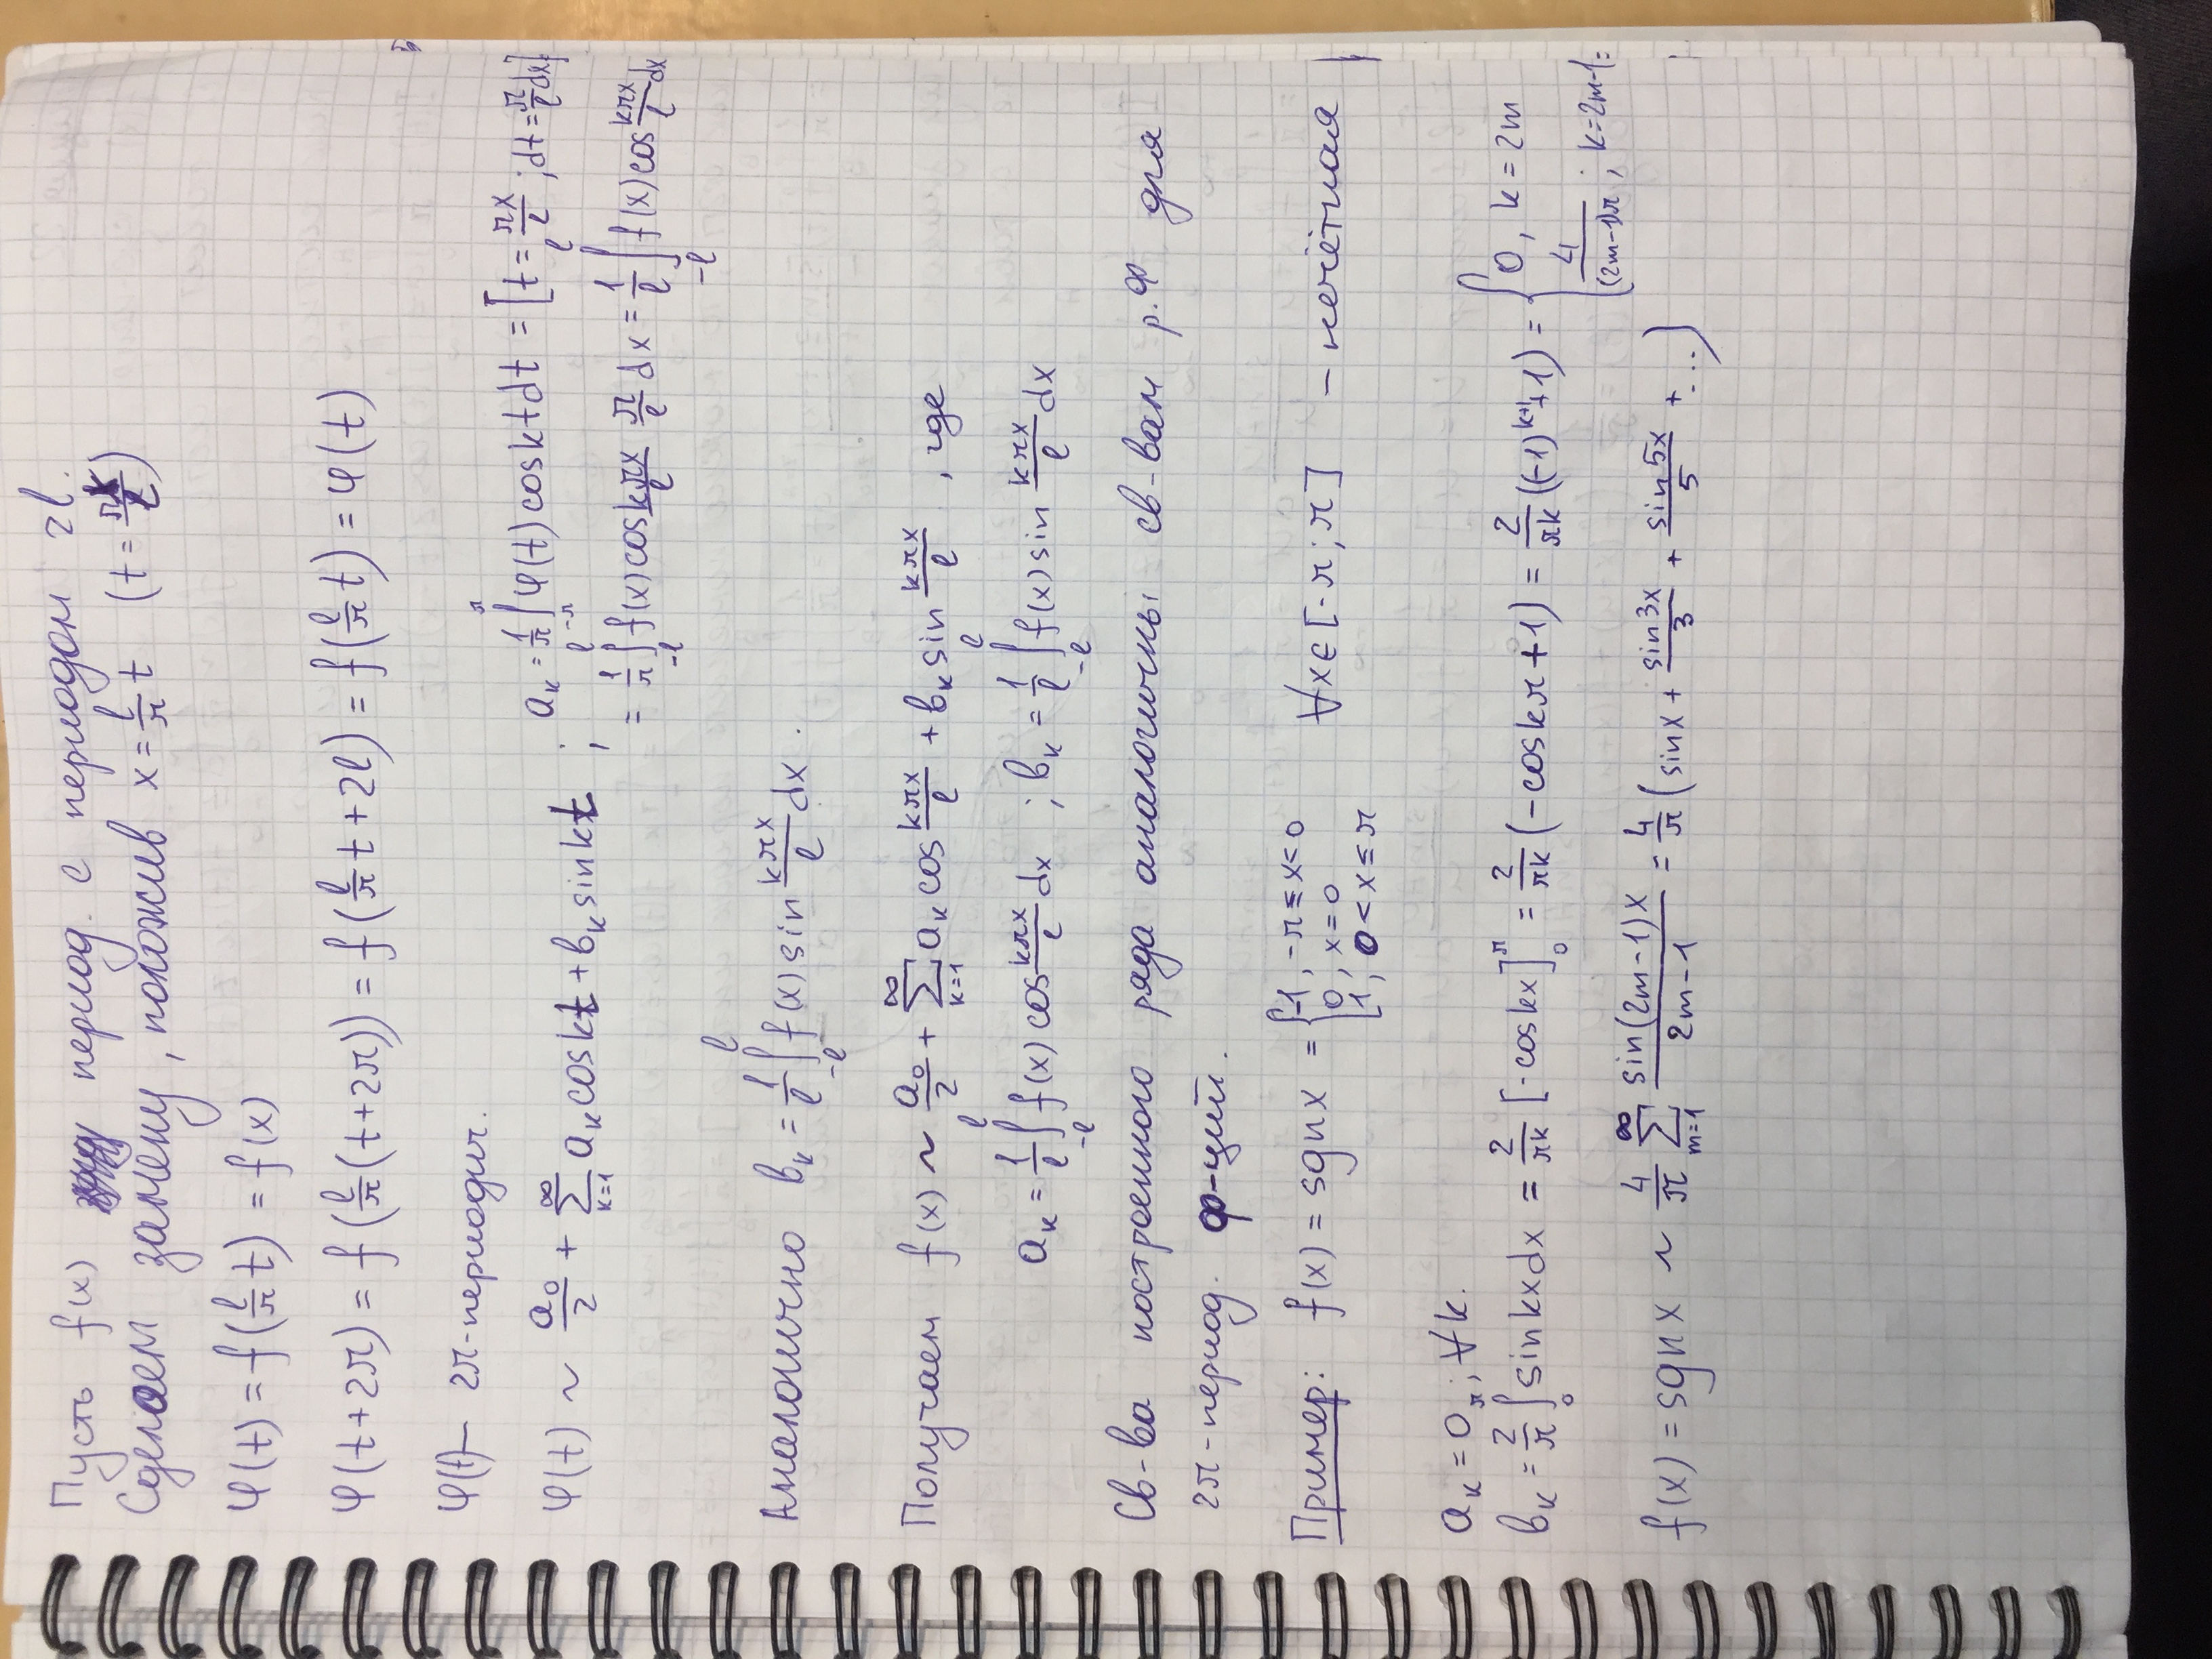 Пусть f(x) период. с периодом 2l.
Сделаем замену, положив x = l/π t (t = πx/l)
φ(t) = f(l/π t) = f(x)
φ(t+2π) = f(l/π (t+2π)) = f(l/π t + 2l) = f(l/π t) = φ(t)
φ(t) – 2π-периодич.
φ(t) ~ a₀/2 + ∑_{k=1}^{∞} aₖ cos kt + bₖ sin kt ; aₖ = 1/π ∫_{-π}^{π} φ(t) cos kt dt = [t = πx/l ; dt = π/l dx]
= 1/π ∫_{-l}^{l} f(x) cos kπx/l π/l dx = 1/l ∫_{-l}^{l} f(x) cos kπx/l dx
Аналогично bₖ = 1/l ∫_{-l}^{l} f(x) sin kπx/l dx.
Получаем f(x) ~ a₀/2 + ∑_{k=1}^{∞} aₖ cos kπx/l + bₖ sin kπx/l , где
aₖ = 1/l ∫_{-l}^{l} f(x) cos kπx/l dx ; bₖ = 1/l ∫_{-l}^{l} f(x) sin kπx/l dx
Св-ва построенного ряда аналогичны св-вам р.Ф для
2π-период. ф-ций.
Пример: f(x) = sgn x = { -1, -π ≤ x < 0
0, x = 0 ∀x ∈ [-π; π] – нечётная
1, 0 < x ≤ π
aₖ = 0 ; ∀k.
bₖ = 2/π ∫_{0}^{π} sin kx dx = 2/πk [-cos kx]_{0}^{π} = 2/πk (-cos kπ + 1) = 2/πk ((-1)^{k+1} + 1) = { 0, k = 2m
4/(2m-1)π ; k = 2m-1 =
f(x) = sgn x ~ 4/π ∑_{m=1}^{∞} sin(2m-1)x/2m-1 = 4/π (sin x + sin 3x/3 + sin 5x/5 + ...)